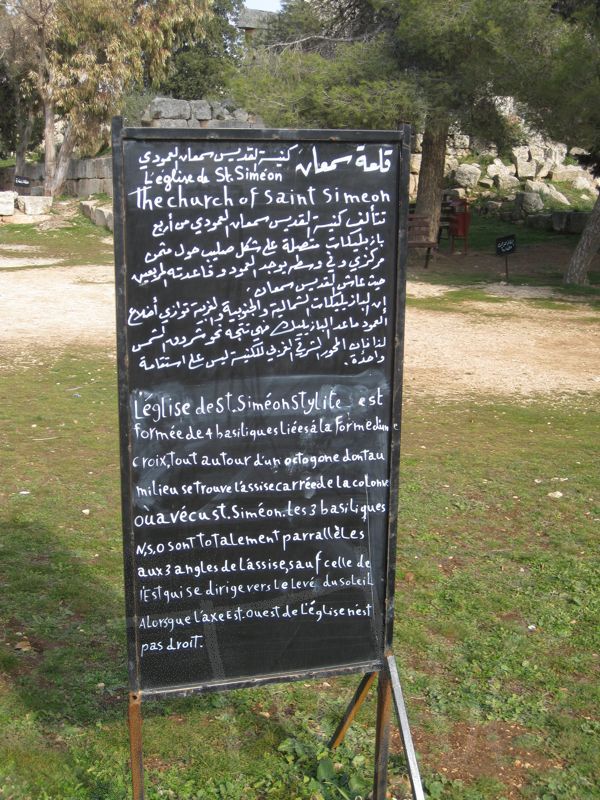 قلعة سمعان كنيسة القديس سمعان العمودي
L'église de St. Siméon
The church of saint simeon
تتألف كنيسة القديس سمعان العمودي من أربع
بازيليكات متصلة على شكل صليب حول مثمن
مركزي وفي وسطه يوجد العمود وقاعدته المربعة
حيث عاش القديس سمعان.
إن البازيليكات الشمالية والجنوبية والغربية توازي أضلاع
العمود ماعدا البازيليك فهي تتجه نحو شروق الشمس
لذا فإن المحور الشرقي الغربي للكنيسة ليس على استقامة
واحدة.
L'église de St. Siméon Stylite est
formée de 4 basiliques liées à la forme d'une
croix, tout autour d'un octogone dont au
milieu se trouve l'assise carrée de la colonne
où a vécu st. Siméon. Les 3 basiliques
N, S, O sont totalement parrallèles
aux 3 angles de l'assise, sauf celle de
l'Est qui se dirige vers le levé du soleil
Alors que l'axe Est. Ouest de l'église n'est
pas droit.